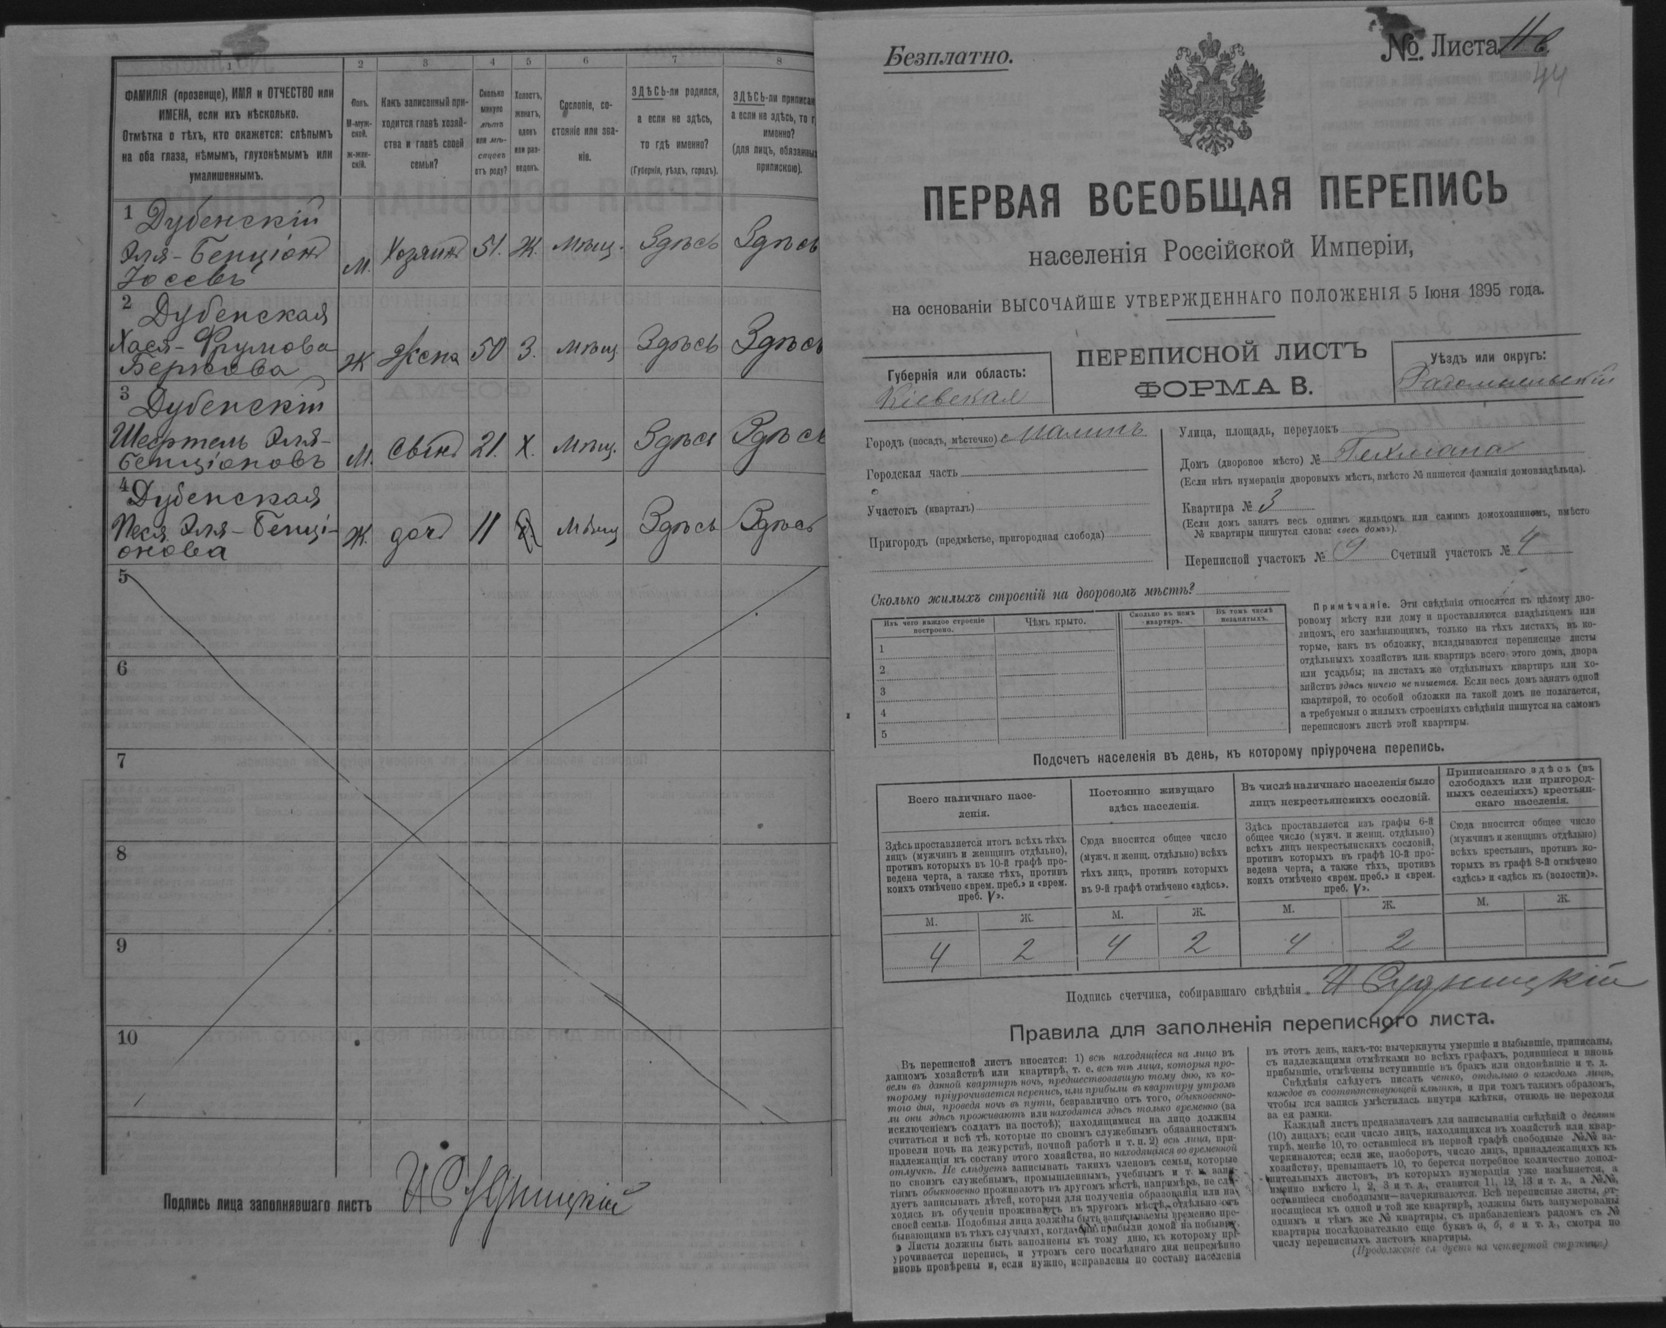 1
2
3
4
5
6
7
8
ФАМИЛІЯ (прозвище), ИМЯ и ОТЧЕСТВО или
ИМЕНА, если ихъ нѣсколько.
Отмѣтка о тѣхъ, кто окажется: слѣпымъ
на оба глаза, нѣмымъ, глухонѣмымъ или
умалишеннымъ.
Полъ.
М-муж-
ской.
Ж-жен-
скій.
Какъ записанный при-
ходится главѣ хозяй-
ства и главѣ своей
семьи?
Сколько
минуло
лѣтъ
или мѣ-
сяцевъ
отъ роду?
Холостъ,
женатъ,
вдовъ
или раз-
веденъ.
Сословіе, со-
стояніе или зва-
ніе.
ЗДѢСЬ-ли родился,
а если не здѣсь,
то гдѣ именно?
(Губернія, уѣздъ, городъ).
ЗДѢСЬ-ли приписан
а если не здѣсь, то г
именно?
(для лицъ, обязанных
припискою).
1 Дубенскій
Эля-Бенціон
Іосевъ
М.
Хозяин
51.
Ж.
мѣщ.
Здѣсь
Здѣсь
2 Дубенская
Хася-Фрумова
Беркова
Ж
жена
50
З.
мѣщ
Здѣсь
Здѣсь
3 Дубенскій
Шефтель Эля-
Бенціоновъ
М.
сынъ
21.
Х.
мѣщ.
Здѣсь
Здѣсь
4 Дубенская
Песя Эля-Бенці-
онова
Ж.
доч
11
мѣщ
Здѣсь
Здѣсь
5
6
7
8
9
10
Подпись лица заполнявшаго листъ И Судницкій
Безплатно.
№ Листа 11 в
44
ПЕРВАЯ ВСЕОБЩАЯ ПЕРЕПИСЬ
населенія Россійской Имперіи,
на основаніи ВЫСОЧАЙШЕ УТВЕРЖДЕННАГО ПОЛОЖЕНІЯ 5 Іюня 1895 года.
Губернія или область:
Кіевская
ПЕРЕПИСНОЙ ЛИСТЪ
ФОРМА В.
Уѣздъ или округъ:
Радомысльскій
Городъ (посадъ, мѣстечко) Малинъ
Городская часть
Участокъ (кварталъ)
Пригородъ (предмѣстье, пригородная слобода)
Улица, площадь, переулокъ
Домъ (дворовое мѣсто) № Гехмана
(Если нѣтъ нумераціи дворовыхъ мѣстъ, вмѣсто № пишется фамилія домовладѣльца).
Квартира № 3
(Если домъ занятъ весь однимъ жильцомъ или самимъ домохозяиномъ, вмѣсто
№ квартиры пишутся слова: «весь домъ»).
Переписной участокъ № 9 Счетный участокъ № 4
Сколько жилыхъ строеній на дворовомъ мѣстѣ?
Изъ чего каждое строеніе
построено.
Чѣмъ крыто.
Сколько въ немъ
квартиръ.
Въ томъ числѣ
незанятыхъ.
1
2
3
4
5
Примѣчаніе. Эти свѣдѣнія относятся къ цѣлому дво-
ровому мѣсту или дому и проставляются владѣльцемъ или
лицомъ, его замѣняющимъ, только на тѣхъ листахъ, въ ко-
торые, какъ въ обложку, вкладываются переписные листы
отдѣльныхъ хозяйствъ или квартиръ всего этого дома, двора
или усадьбы; на листахъ же отдѣльныхъ квартиръ или хо-
зяйствъ здѣсь ничего не пишется. Если весь домъ занятъ одной
квартирой, то особой обложки на такой домъ не полагается,
а требуемыя о жилыхъ строеніяхъ свѣдѣнія пишутся на самомъ
переписномъ листѣ этой квартиры.
Подсчетъ населенія въ день, къ которому пріурочена перепись.
Всего наличнаго насе-
ленія.
Постоянно живущаго
здѣсь населенія.
Въ числѣ наличнаго населенія было
лицъ некрестьянскихъ сословій.
Приписаннаго здѣсь (въ
слободахъ или пригород-
ныхъ селеніяхъ) крестьян-
скаго населенія.
Здѣсь проставляется итогъ всѣхъ тѣхъ
лицъ (мужчинъ и женщинъ отдѣльно),
противъ которыхъ въ 10-й графѣ про-
ведена черта, а также тѣхъ, противъ
коихъ отмѣчено «врем. преб.» и «врем.
преб. V».
Сюда вносится общее число
(мужч. и женщ. отдѣльно) всѣхъ
тѣхъ лицъ, противъ которыхъ
въ 9-й графѣ отмѣчено «здѣсь».
Здѣсь проставляется изъ графы 6-й
общее число (мужч. и женщ. отдѣльно)
всѣхъ лицъ некрестьянскихъ сословій,
противъ которыхъ въ графѣ 10-й про-
ведена черта, а также тѣхъ, противъ
коихъ отмѣчено «врем. преб.» и «врем.
преб. V».
Сюда вносится общее число
(мужчинъ и женщинъ отдѣльно)
всѣхъ крестьянъ, противъ ко-
торыхъ въ графѣ 8-й отмѣчено
«здѣсь» и «здѣсь къ (волости)».
М.
Ж.
М.
Ж.
М.
Ж.
М.
Ж.
4
2
4
2
4
2
Подпись счетчика, собиравшаго свѣдѣнія И Судницкій
Правила для заполненія переписного листа.
Въ переписной листъ вносятся: 1) всѣ находящіеся на лицо въ
данномъ хозяйствѣ или квартирѣ, т. е. всѣ тѣ лица, которыя про-
вели въ данной квартирѣ ночь, предшествовавшую тому дню, къ ко-
торому пріурочивается перепись, или прибыли въ квартиру утромъ
того дня, проведя ночь въ пути, безразлично отъ того, обыкновенно-
ли они здѣсь проживаютъ или находятся здѣсь только временно (за
исключеніемъ солдатъ на постоѣ); находящимися на лицо должны
считаться и всѣ тѣ, которые по своимъ служебнымъ обязанностямъ
провели ночь на дежурствѣ, ночной работѣ и т. п. 2) всѣ лица, при-
надлежащія къ составу этого хозяйства, но находящіяся во временной
отлучкѣ. Не слѣдуетъ записывать такихъ членовъ семьи, которые
по своимъ служебнымъ, промышленнымъ, учебнымъ и т. п. заня-
тіямъ обыкновенно проживаютъ въ другомъ мѣстѣ, напримѣръ, не слѣ-
дуетъ записывать дѣтей, которыя для полученія образованія или на-
ходясь въ обученіи проживаютъ въ другомъ мѣстѣ, отдѣльно отъ
своей семьи. Подобныя лица должны быть записываемы временно пре-
бывающими въ тѣхъ случаяхъ, когда они прибыли домой на побывку.
Листы должны быть заполнены къ тому дню, къ которому прі-
урочивается перепись, и утромъ сего послѣдняго дня непремѣнно
вновь провѣрены и, если нужно, исправлены по составу населенія
въ этотъ день, какъ-то: вычеркнуты умершіе и выбывшіе, приписаны,
съ надлежащими отмѣтками во всѣхъ графахъ, родившіеся и вновь
прибывшіе, отмѣчены вступившіе въ бракъ или овдовѣвшіе и т. д.
Свѣдѣнія слѣдуетъ писать четко, отдѣльно о каждомъ лицѣ,
каждое въ соотвѣтствующей клѣткѣ, и при томъ такимъ образомъ,
чтобы вся запись умѣстилась внутри клѣтки, отнюдь не переходя
за ея рамки.
Каждый листъ предназначенъ для записыванія свѣдѣній о десяти
(10) лицахъ; если число лицъ, находящихся въ хозяйствѣ или квар-
тирѣ, менѣе 10, то оставшіеся въ первой графѣ свободные №№ за-
черкиваются; если же, наоборотъ, число лицъ, принадлежащихъ къ
хозяйству, превышаетъ 10, то берется потребное количество допол-
нительныхъ листовъ, въ которыхъ нумерація уже измѣняется, а
именно вмѣсто 1, 2, 3 и т. д., ставится 11, 12, 13 и т. д., а №№,
оставшіеся свободными—зачеркиваются. Всѣ переписные листы, от-
носящіеся къ одной и той же квартирѣ, должны быть занумерованы
однимъ и тѣмъ же № квартиры, съ прибавленіемъ рядомъ съ №
квартиры послѣдовательно еще буквъ а, б, в и т. д., смотря по
числу переписныхъ листовъ квартиры.
(Продолженіе слѣдуетъ на четвертой страницѣ.)